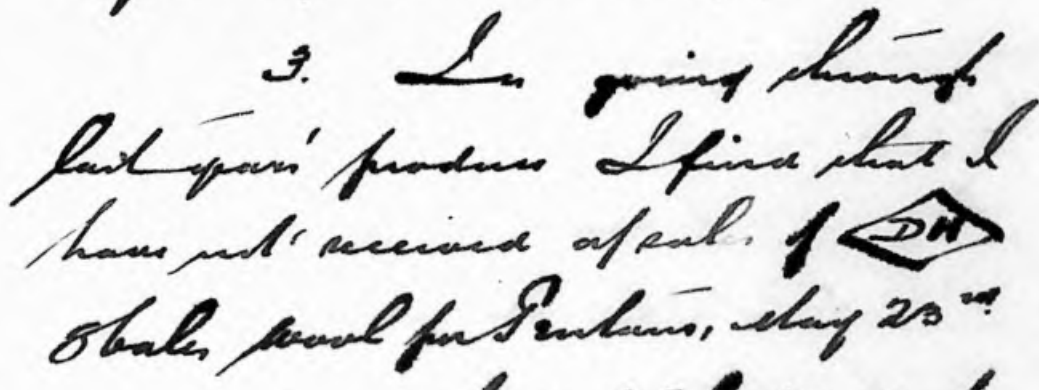 3. In going through
last year's produce I find that I
have not received a/sales of DH
8 bales wool per Pentans, May 23rd